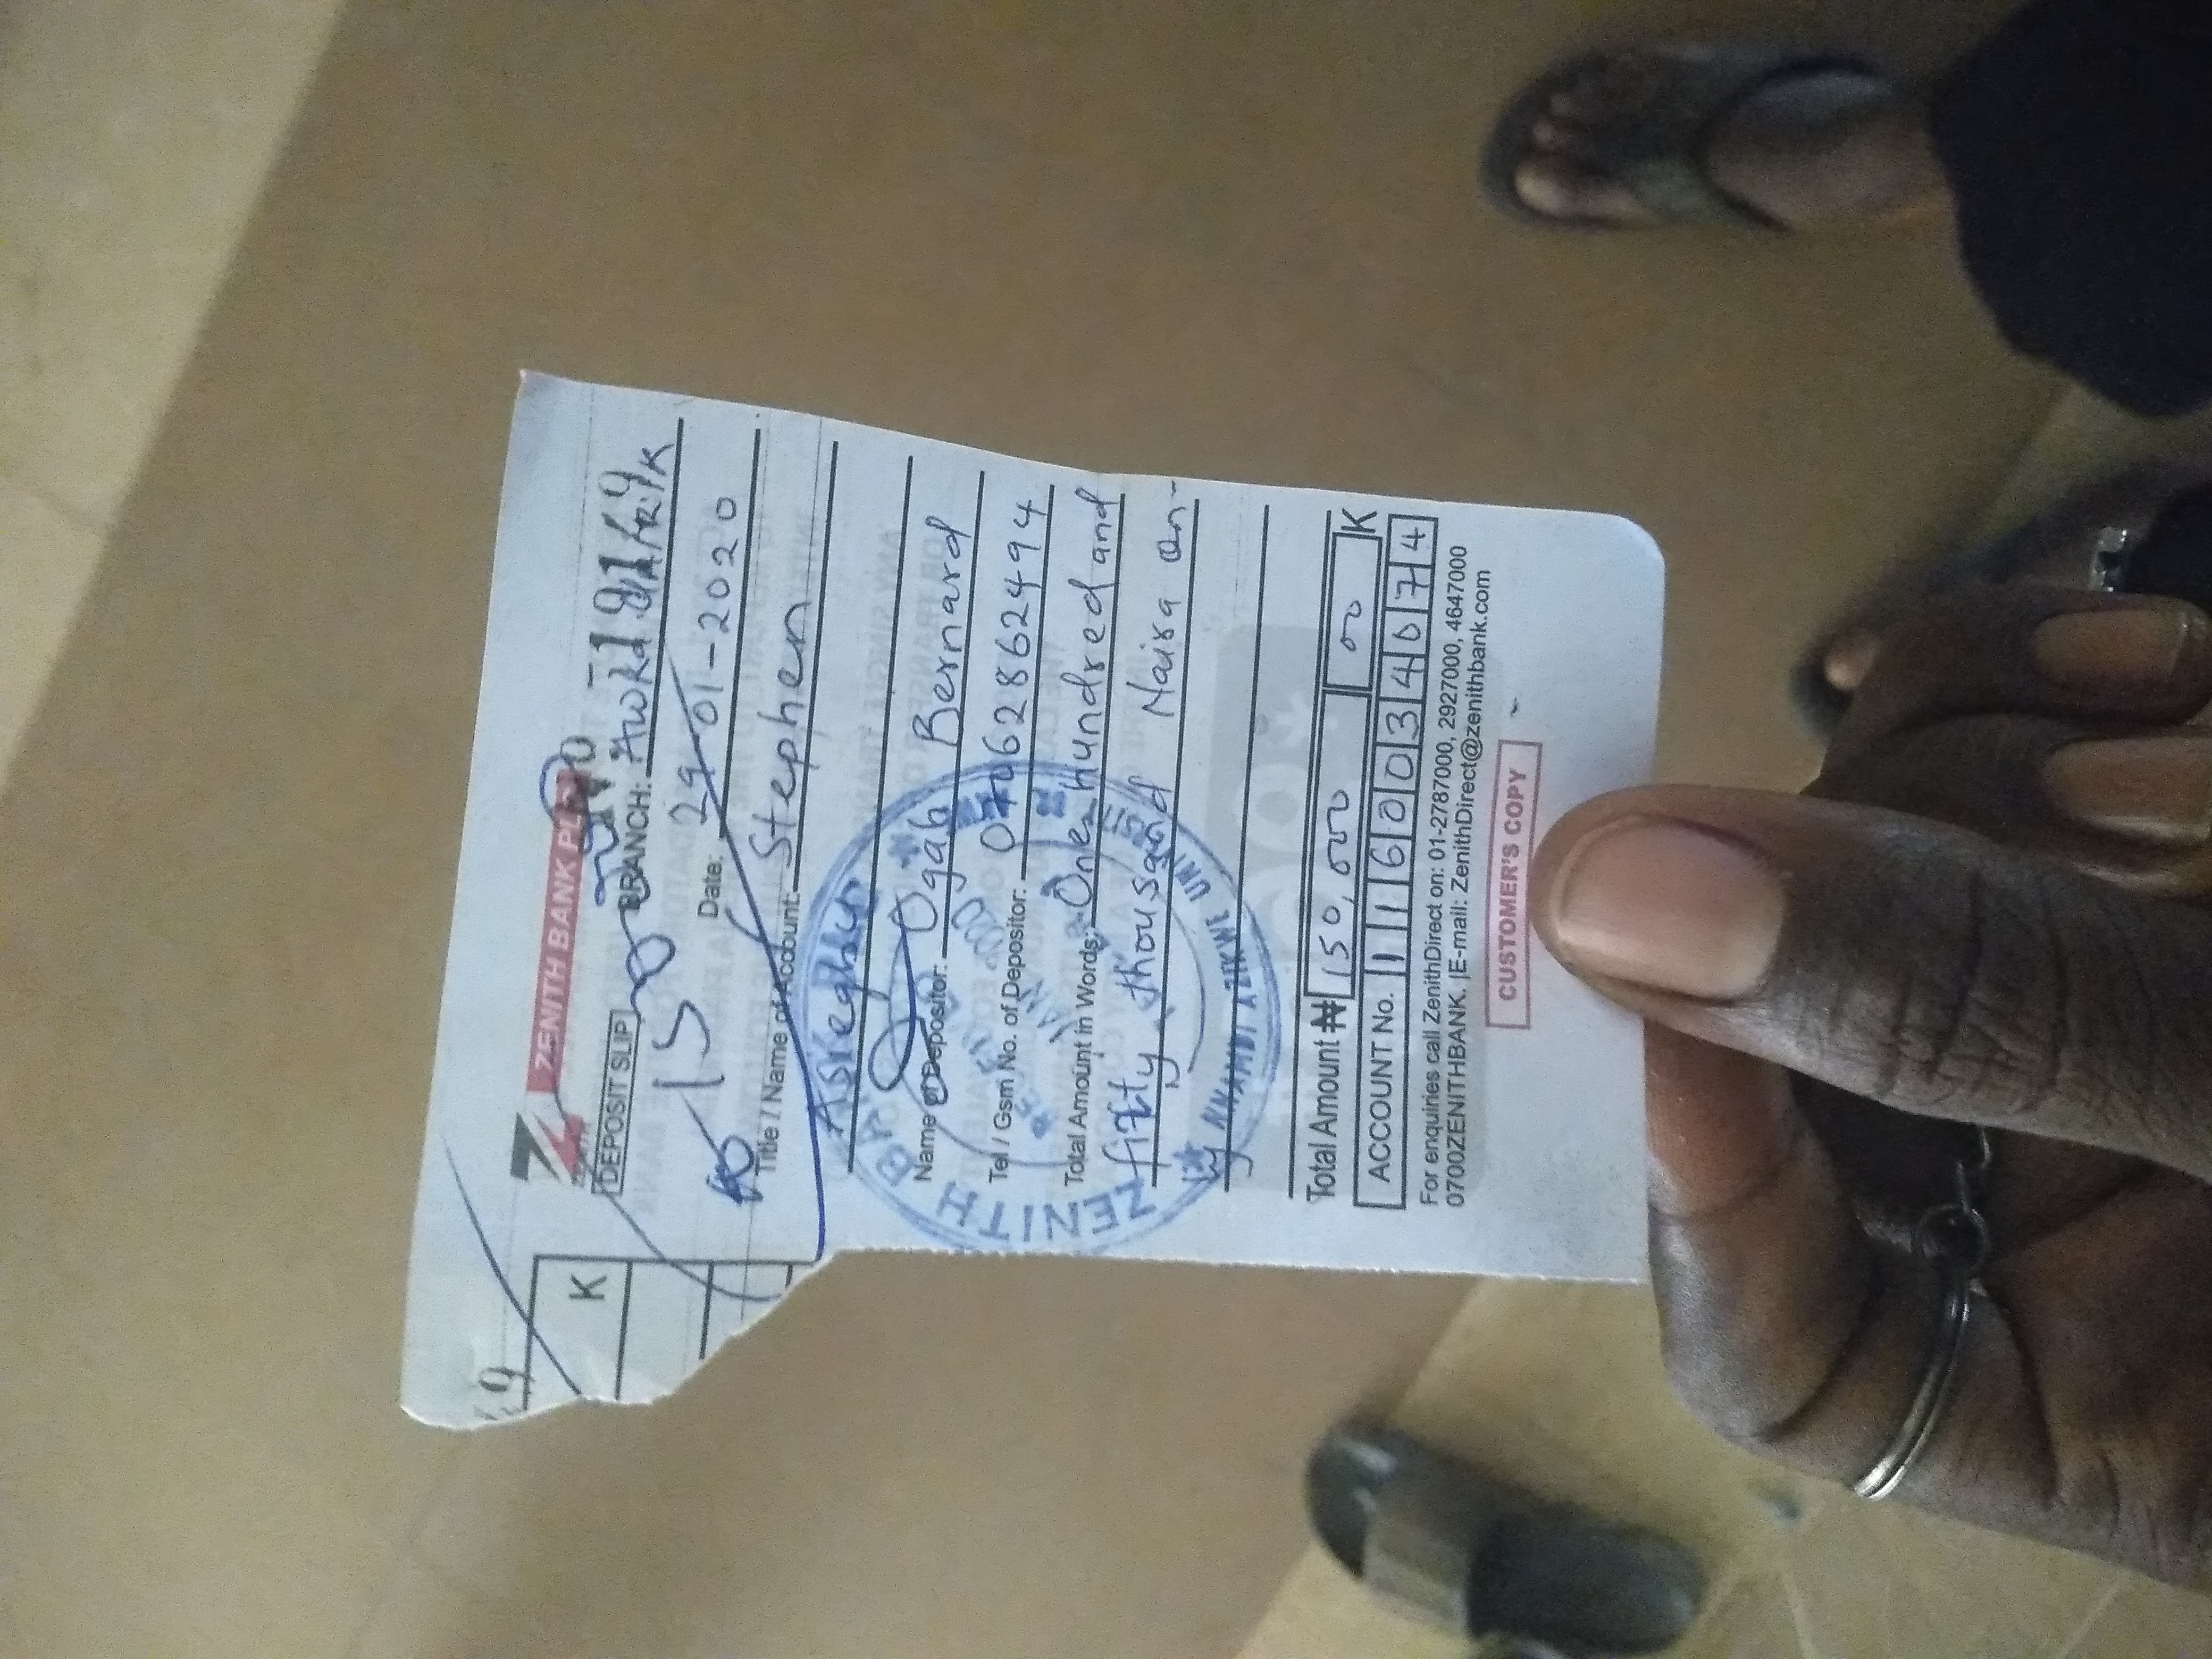 ZENITH BANK PLC
DEPOSIT SLIP
BRANCH: Awka
Date: 29-01-2020
Title / Name of Account: Stephen
Name of Depositor: Ogah Bernard
Tel / Gsm No. of Depositor: 07062862494
Total Amount in Words: One Hundred and
fifty thousand Naira on-
ly
ZENITH
NNAMDI AZIKIWE
Total Amount ₦ 150,000 00 K
ACCOUNT No. 1160034074
For enquiries call ZenithDirect on: 01-2787000, 2927000, 4647000
0700ZENITHBANK, |E-mail: ZenithDirect@zenithbank.com
CUSTOMER'S COPY
K